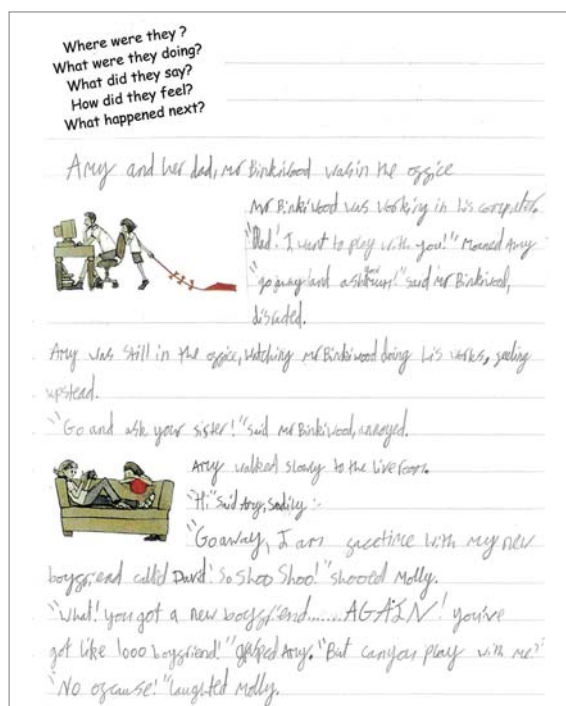 Where were they ?
What were they doing?
What did they say?
How did they feel?
What happened next?
Amy and her dad, mr Binkiwood was in the ofgice
Mr Binkiwood was working in his computer.
"Dad! I want to play with you!" Moaned Amy
"go away and ask your mum!" said mr Binkiwood,
Amy was still in the ofgice, watching mr Binkiwood doing his works, geeling
upstead.
"Go and ask your sister!" said mr Binkiwood, annoyed.
Amy walked slowly to the live room.
"Hi" said Amy, sadily :-
"Go away, I am gacetime with my new
boygriend called David! So Shoo Shoo!" shooed Molly.
"What! you got a new boygriend......AGAIN! you've
got like 1000 boygriend!" gasped Amy. "But can you play with me?"
"No ogcause!" laughted Molly.